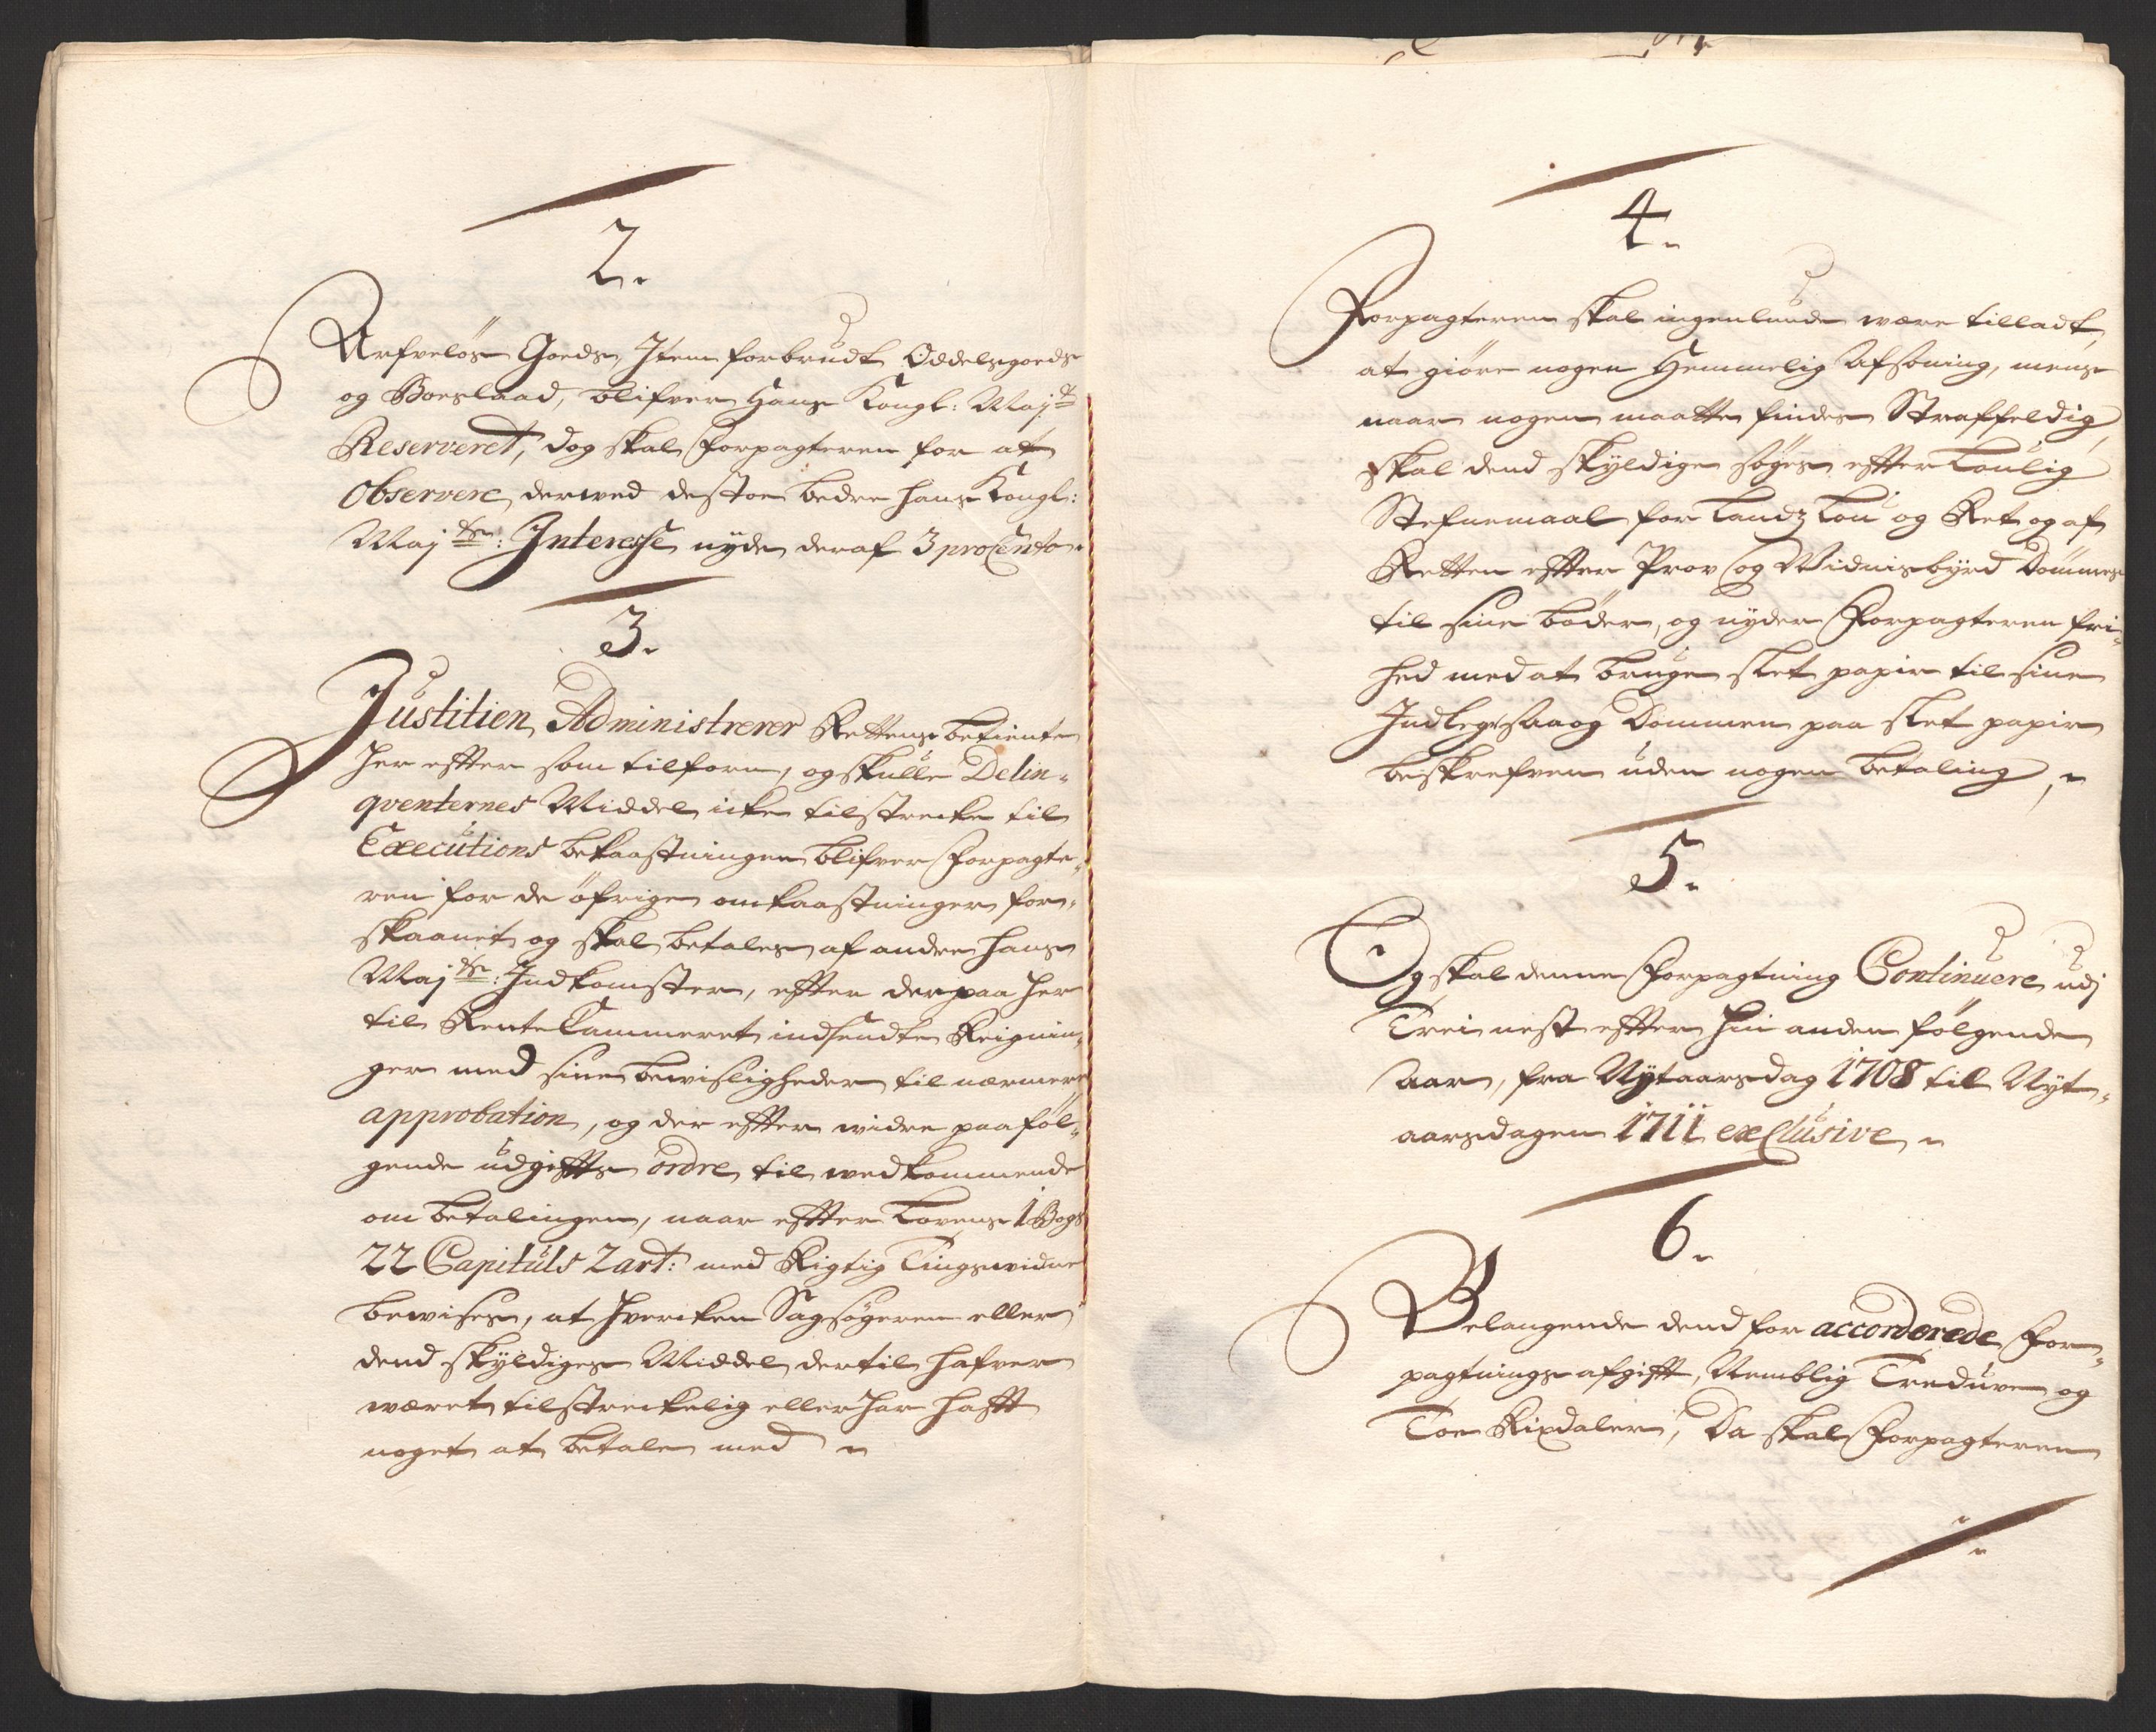 2.
Arfveløs Goeds, Item forbrudt Oddelsgoeds
og Boeslaad, blifver Hans Kongl: Maj:t
Reserveret, dog skal Forpagteren for at
Observere derved destoe bedre hans Kongl:
Maj:ts: Interesse nyde deraf 3 pro Cento.
3.
Justitien Administrerer Rettens betiente
her effter som tilforn, og skulle Delin-
qventernes Middel icke tilstrecke til
Executions bekaastningen blifver Forpagte-
ren for de øfrige omkaastninger for-
skaanet og skal betales af andre hans
Maj:ts: Indkomster, effter derpaa her
til Rente Cammeret indsendte Reignin-
ger med sine bewisligheder til nærmere
approbation, og der effter widre paaføl-
gende udgiffts ordre til wedkommende
om betalingen, naar effter Lovens 1 Bogs
22 Capituls 2 art: med Rigtig Tingswidne
bewises, at hvercken Sagsøgeren eller
dend skyldiges Middel dertil hafver
wæret tilstreckelig eller har hafft
noget at betale med
4.
Forpagteren skal ingenlunde være tilladt
at giøre nogen Hemmelig Afsoning, mens
naar nogen maatte findes Straffeldig,
skal dend skyldige søges effter Loulig
Stefnemaal for Landz Lou og Ret og af
Retten effter Prov og Widnisbyrd Dømmes
til sine bøder, og nyder Forpagteren fri-
hed med at bruge slet papir til sine
Indleg saa og Dommen paa slet papir
beskrefven uden nogen betaling,
5.
Og skal denne Forpagtning Continuere udj
Trei nest effter hin anden følgende
Aar, fra Nytaarsdag 1708 til Nyt-
aarsdagen 1711 exclusive
6.
Belangende dend for accorderede For-
pagtnings afgifft, Nemblig Treduve og
Toe Rixdaler, Da skal Forpagteren